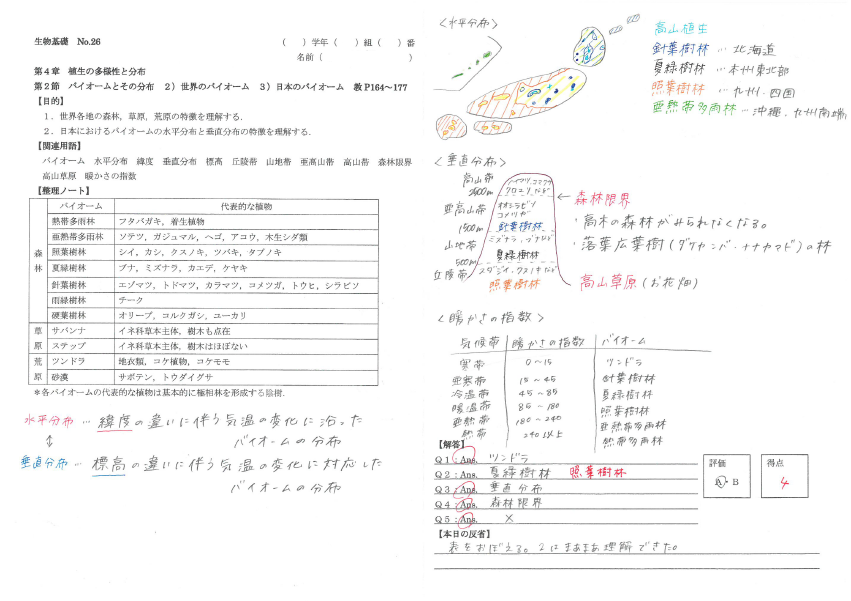 生物基礎 No.26 （ ）学年（ ）組（ ）番
名前（ ）
第４章 植生の多様性と分布
第２節 バイオームとその分布 ２）世界のバイオーム ３）日本のバイオーム 教 P164～177
【目的】
１．世界各地の森林，草原，荒原の特徴を理解する．
２．日本におけるバイオームの水平分布と垂直分布の特徴を理解する．
【関連用語】
バイオーム 水平分布 緯度 垂直分布 標高 丘陵帯 山地帯 亜高山帯 高山帯 森林限界
高山草原 暖かさの指数
【整理ノート】
バイオーム 代表的な植物
森林 熱帯多雨林 フタバガキ，着生植物
亜熱帯多雨林 ソテツ，ガジュマル，ヘゴ，アコウ，木生シダ類
照葉樹林 シイ，カシ，クスノキ，ツバキ，タブノキ
夏緑樹林 ブナ，ミズナラ，カエデ，ケヤキ
針葉樹林 エゾマツ，トドマツ，カラマツ，コメツガ，トウヒ，シラビソ
雨緑樹林 チーク
硬葉樹林 オリーブ，コルクガシ，ユーカリ
草原 サバンナ イネ科草本主体，樹木も点在
ステップ イネ科草本主体，樹木はほぼない
荒原 ツンドラ 地衣類，コケ植物，コケモモ
砂漠 サボテン，トウダイグサ
＊各バイオームの代表的な植物は基本的に極相林を形成する陰樹．
水平分布 … 緯度の違いに伴う気温の変化に沿った
バイオームの分布
↕
垂直分布 … 標高の違いに伴う気温の変化に対応した
バイオームの分布
〈水平分布〉
高山植生
針葉樹林 … 北海道
夏緑樹林 … 本州東北部
照葉樹林 … 九州．四国
亜熱帯多雨林 … 沖縄．九州南端
〈垂直分布〉
高山帯 ハイマツ コマクサ
クロユリ など
2500m ← 森林限界
亜高山帯 オオシラビソ
コメツガ
・高木の森林がみられなくなる。
1500m 針葉樹林
山地帯 ミズナラ、ブナなど
・落葉広葉樹（ダケカンバ・ナナカマド）の林
500m 夏緑樹林
丘陵帯 スダジイ、クスノキなど
照葉樹林 高山草原（お花畑）
〈暖かさの指数〉
気候帯 暖かさの指数 バイオーム
寒帯 0～15 ツンドラ
亜寒帯 15～45 針葉樹林
冷温帯 45～85 夏緑樹林
暖温帯 85～180 照葉樹林
亜熱帯 180～240 亜熱帯多雨林
熱帯 240以上 熱帯多雨林
【解答】
Ｑ１：Ans. ツンドラ
Ｑ２：Ans. 夏緑樹林 照葉樹林
Ｑ３：Ans. 垂直分布
Ｑ４：Ans. 森林限界
Ｑ５：Ans. ×
評価
A・B
得点
4
【本日の反省】
表をおぼえる。2はまあまあ理解できた。